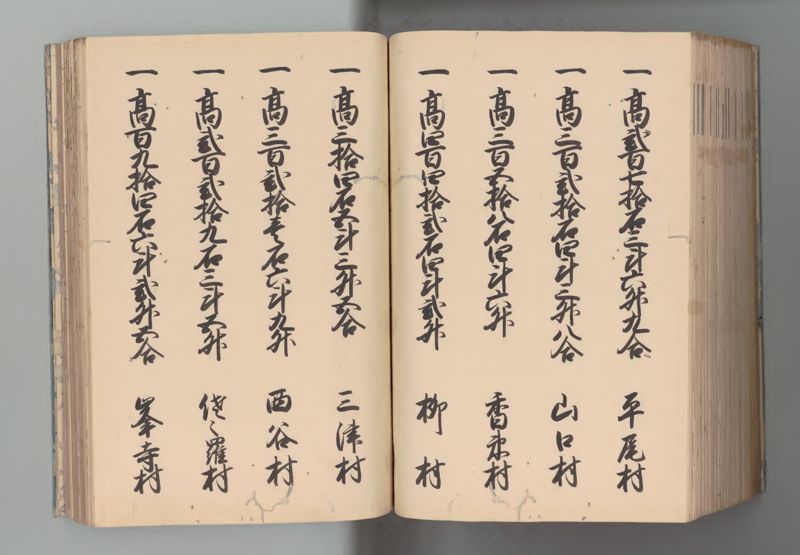 一 高弐百七拾石三斗六升九合 平尾村
一 高三百弐拾石四斗三升八合 山口村
一 高三百五拾八石四斗六升 香束村
一 高四百四拾弐石四斗弐升 柳村
一 高三拾四石五斗三升五合 三津村
一 高三百弐拾壱石六斗九升 西谷村
一 高弐百弐拾九石三斗五升 佐々羅村
一 高百九拾四石六斗弐升五合 峯寺村